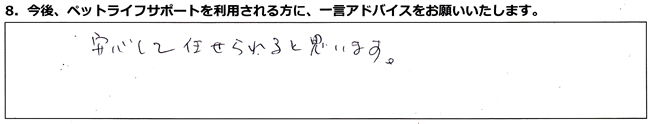 8．今後、ペットライフサポートを利用される方に、一言アドバイスをお願いいたします。
安心して任せられると思います。